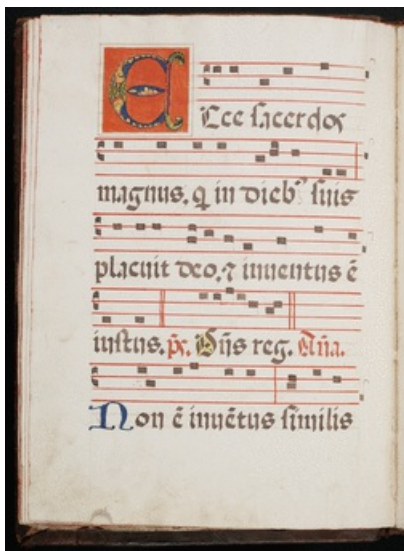 Ecce sacerdos
magnus. q̄ in dieb⁹ suis
placuit deo. ⁊ inuentus ē
iustus. p̄s. Dn̄s reg. An̄a.
Non ē inuētus similis